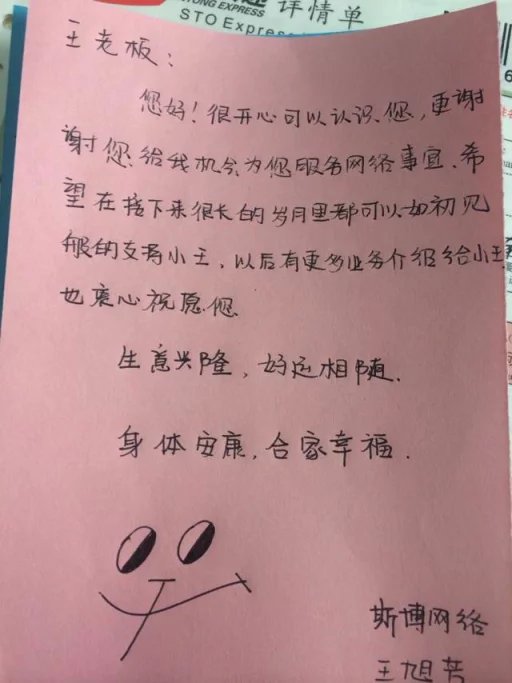 TONG EXPRESS
详情单
STO Express
王老板：
您好！很开心可以认识您，更谢
谢您给我机会为您服务网络事宜.希
望在接下来很长的岁月里都可以如初见
般的支持小王，以后有更多业务介绍给小王
也衷心祝愿您
生意兴隆，好运相随.
身体安康，合家幸福.
斯博网络
王旭芳